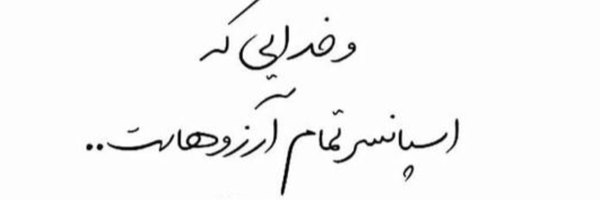 و خدایی که
اسپانسر تمام آرزوهاست..